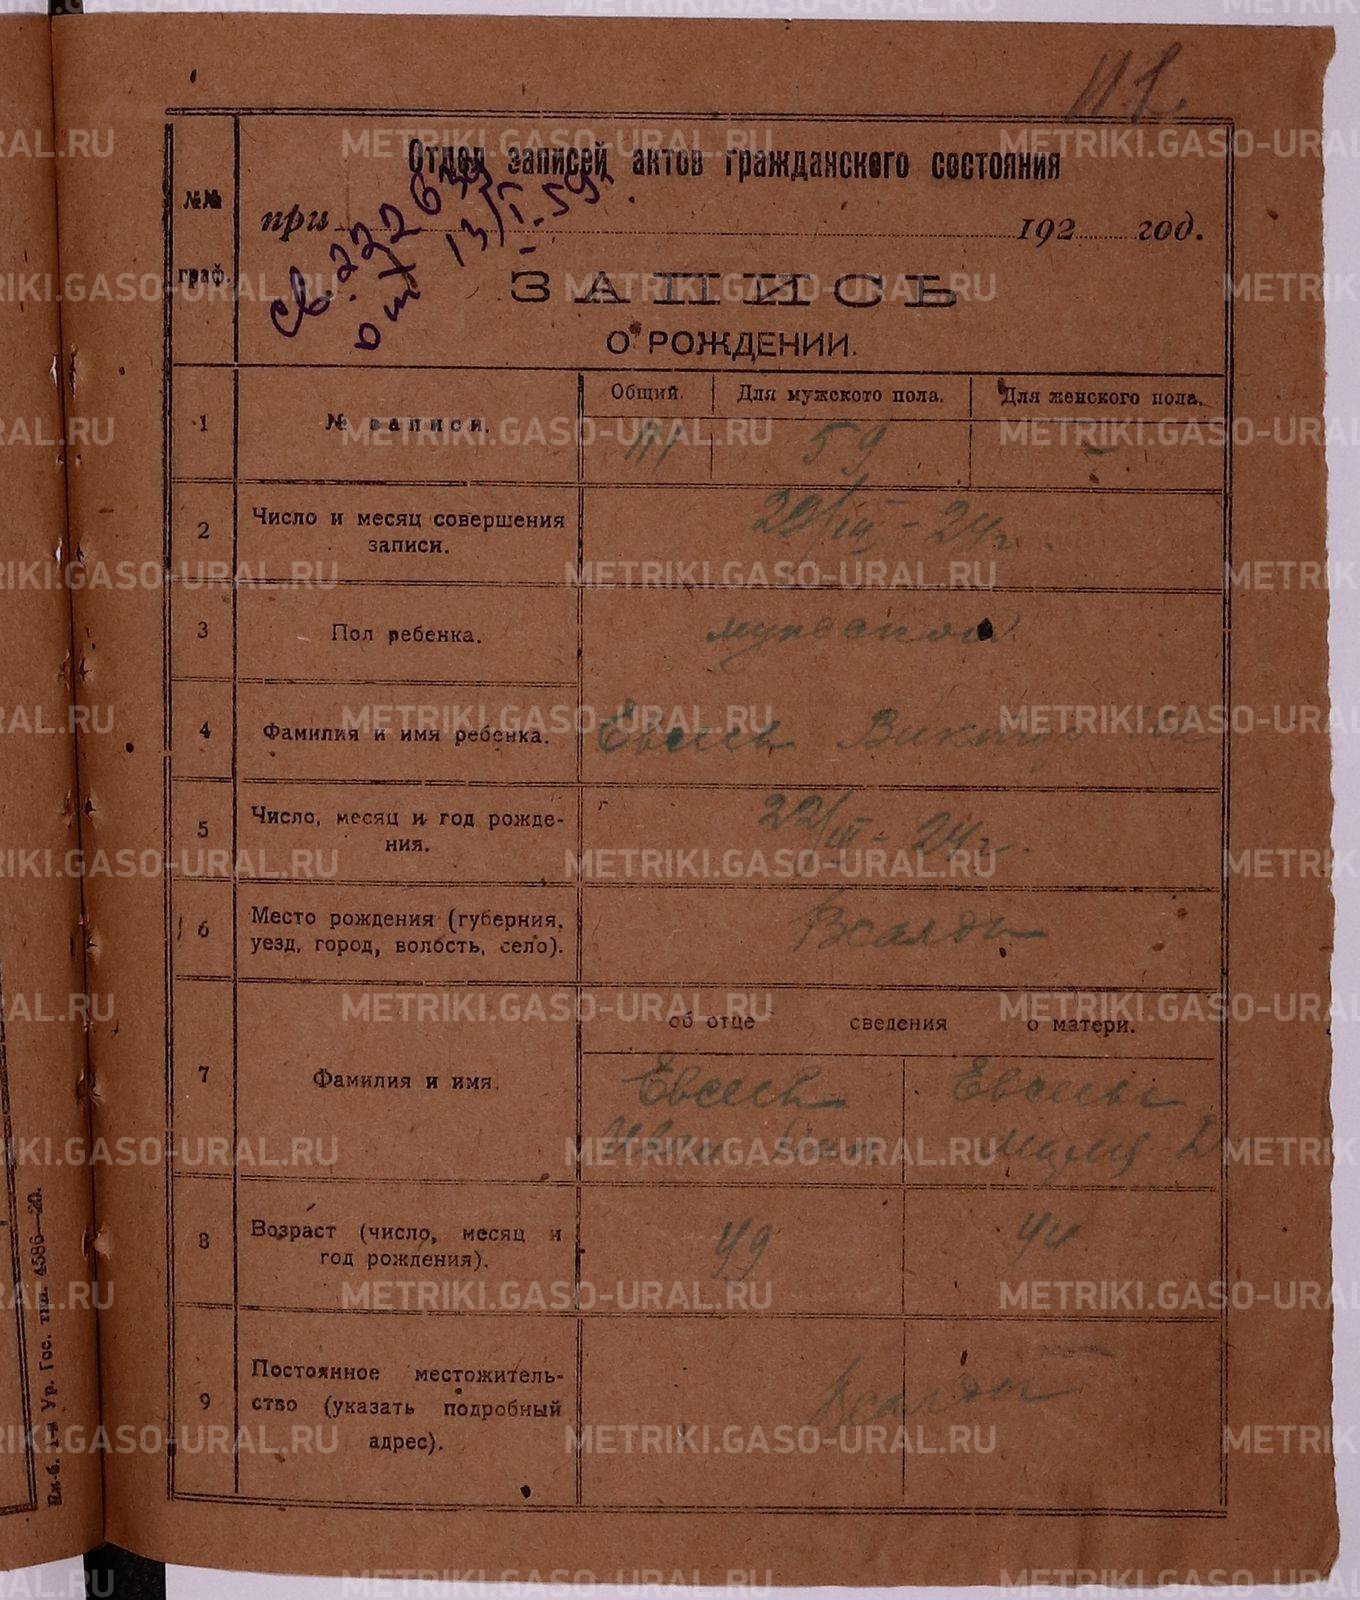 Отдел записей актов гражданского состояния
№№ граф.
при 192 год.
св. 222
от 13/I-59г.
ЗАПИСЬ
О РОЖДЕНИИ.
Общий. Для мужского пола. Для женского пола.
1 № записи. 111 59 -
2 Число и месяц совершения
записи.
29/III-24г.
3 Пол ребенка. мужской
4 Фамилия и имя ребенка. Евсеев Виктор
5 Число, месяц и год рожде-
ния.
22/III-24г.
6 Место рождения (губерния,
уезд, город, волость, село).
об отце сведения о матери.
7 Фамилия и имя. Евсеев Евсеева
Иван
8 Возраст (число, месяц и
год рождения).
49 44
9 Постоянное местожитель-
ство (указать подробный
адрес).
Ур. Гос. тип. 4586—20.
METRIKI.GASO-URAL.RU